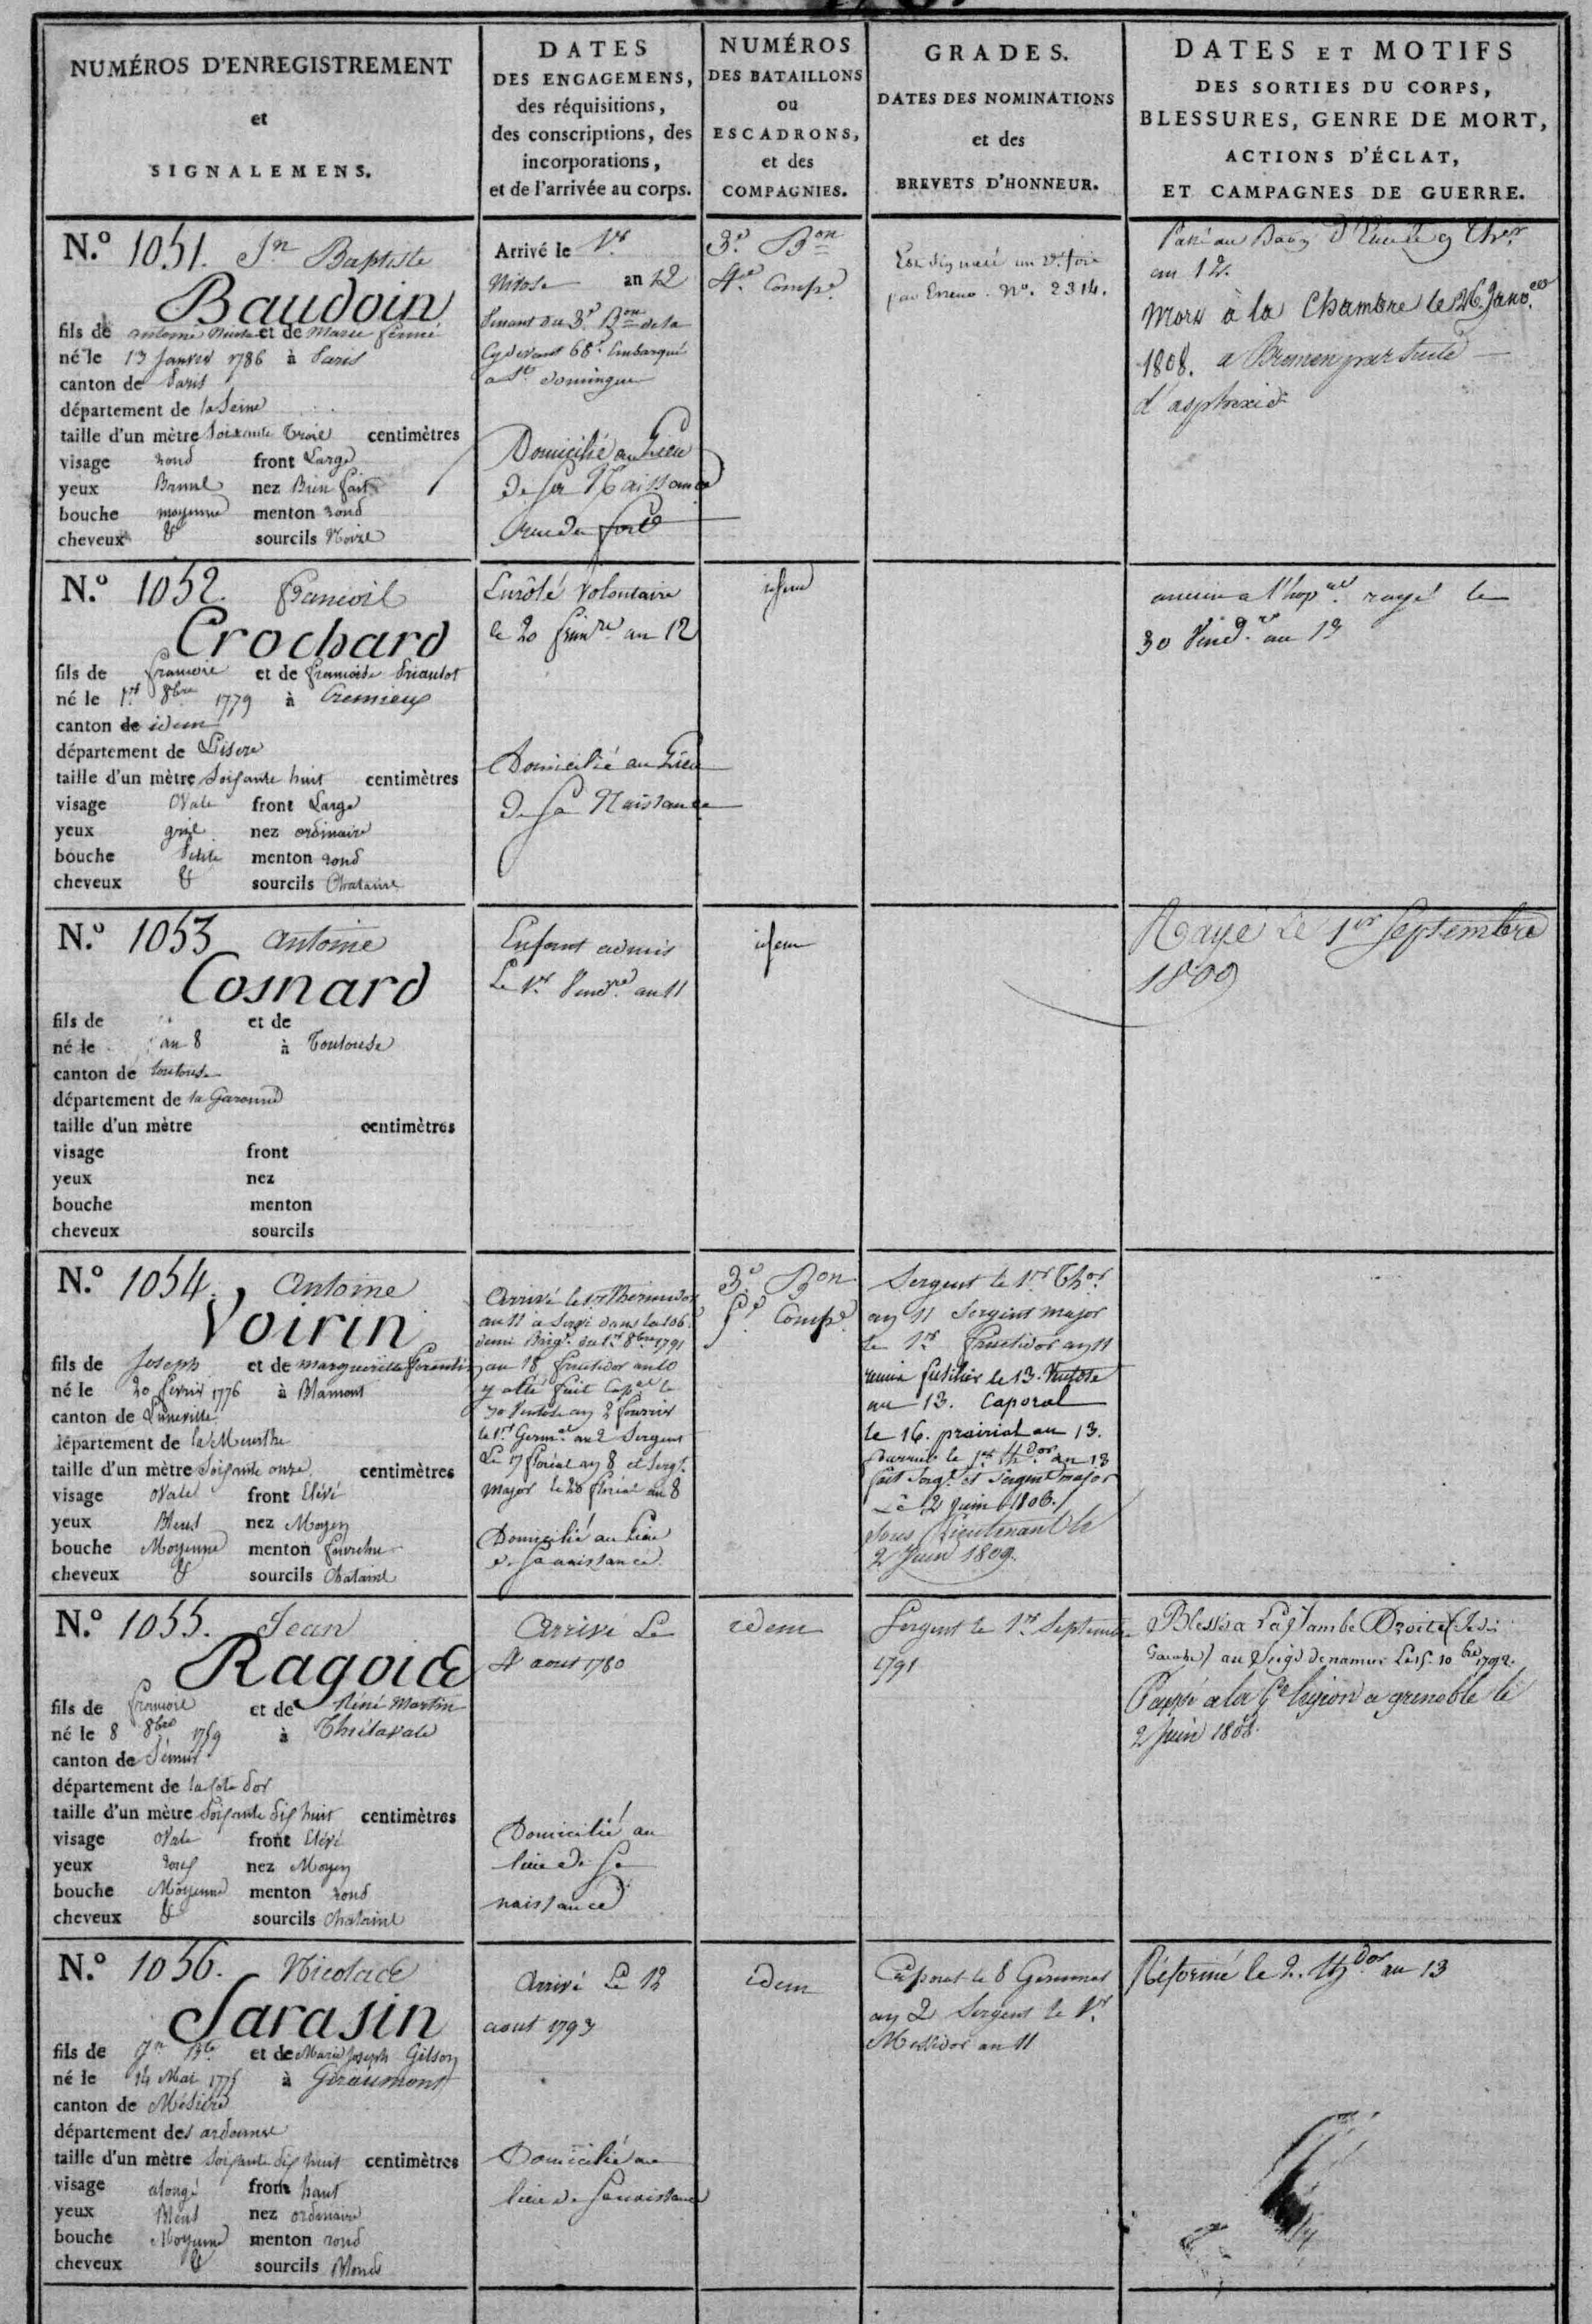 NUMÉROS D'ENREGISTREMENT
et
SIGNALEMENS.
DATES
DES ENGAGEMENS,
des réquisitions,
des conscriptions, des
incorporations,
et de l'arrivée au corps.
NUMÉROS
DES BATAILLONS
ou
ESCADRONS,
et des
COMPAGNIES.
GRADES.
DATES DES NOMINATIONS
et des
BREVETS D'HONNEUR.
DATES ET MOTIFS
DES SORTIES DU CORPS,
BLESSURES, GENRE DE MORT,
ACTIONS D'ÉCLAT,
ET CAMPAGNES DE GUERRE.
N.º 1051. Jn Baptiste
Baudoin
fils de antoine et de Marie
né le 13 Janvier 1786 à Paris
canton de Paris
département de la Seine
taille d'un mètre Soixante Trois centimètres
visage rond front Large
yeux Bruns nez Bien fait
bouche moyenne menton rond
cheveux & sourcils Noirs
Arrivé le 1er
Nivose an 12
Venant du 3e Bon de la
Cydevant 68e Embarqué
a St domingue
Domicilié au Lieu
de sa Naissance
rue du
3e Bon
4e Compe
Est signalé une 2e fois
par Erreur. No. 2314.
Passé au Baon d'Elite le 9 Ther
an 12.
Mort à la Chambre le 26 Janv.er
1808. a Bremen par suite
d'asphixie
N.º 1052. françois
Crochard
fils de françois et de françoise
né le 1er 8bre 1779 à Cremieux
canton de idem
département de L'isere
taille d'un mètre Soixante huit centimètres
visage Ovale front Large
yeux gris nez ordinaire
bouche Petite menton rond
cheveux & sourcils Chatains
Enrôlé Volontaire
le 20 frimre an 12
Domicilié au Lieu
de sa Naissance
idem
ancien a l'hopal rayé le
30 Vendre an 13
N.º 1053 antoine
Cosnard
fils de et de
né le an 8 à Toulouse
canton de toulouse
département de la Garonne
taille d'un mètre centimètres
visage front
yeux nez
bouche menton
cheveux sourcils
Enfant admis
Le 1er Vendre an 11
idem
Rayé Le 1er Septembre
1809
N.º 1054. antoine
Voirin
fils de Joseph et de marguerite
né le 20 fevrier 1776 à Blamont
canton de Luneville
département de la Meurthe
taille d'un mètre Soixante onze centimètres
visage Ovale front Elévé
yeux Bleus nez Moyen
bouche Moyenne menton fourchu
cheveux & sourcils Chatains
Arrivé le 1er Thermidor
an 11 a Servi dans la 106e
demi Brige du 1er 8bre 1791
au 18 fructidor an 10
y a été fait Capal le
30 Ventose an 2 fourrier
le 1er Germal an 2 Sergent
Le 17 floréal an 8 et Sergt
Major le 20 floréal an 8
Domicilié au Lieu
de sa naissance
3e Bon
Compe
Sergent le 1er Thor
an 11 Sergent major
le 1er fructidor an 11
remis fusilier le 13. Ventose
an 13. Caporal
le 16. prairial an 13.
fourrier le 1er Thdor an 13
fait Sergt et Sergent major
Le 12 Juin 1806.
Sous Lieutenant le
2 Juin 1809.
N.º 1055. Jean
Ragois
fils de françois et de Réné Martin
né le 8 8bre 1759 à
canton de Sémur
département de la Cote d'or
taille d'un mètre Soixante dix huit centimètres
visage Ovale front Elévé
yeux roux nez Moyen
bouche Moyenne menton rond
cheveux & sourcils Chatains
Arrivé Le
4 aout 1780
Domicilié au
lieu de Sa
naissance
idem
Sergent le 1er Septembre
1791
Blessé a La Jambe Droite
au Siège de namur Le 15. 10bre 1792.
Passé a la Légion a grenoble le
2 Juin 1808.
N.º 1056. Nicolas
Sarasin
fils de Jn Bte et de Marie Joseph Gilson
né le 14 Mai 1775 à Giraumont
canton de Mésière
département des ardennes
taille d'un mètre Soixante dix huit centimètres
visage alongé front haut
yeux Bleus nez ordinaire
bouche Moyenne menton rond
cheveux & sourcils Blonds
Arrivé Le 12
aout 1793
Domicilié au
lieu de sa naissance
idem
Caporal le 8 Germinal
an 2 Sergent le 1er
Messidor an 11
Réformé le 2. Thdor an 13